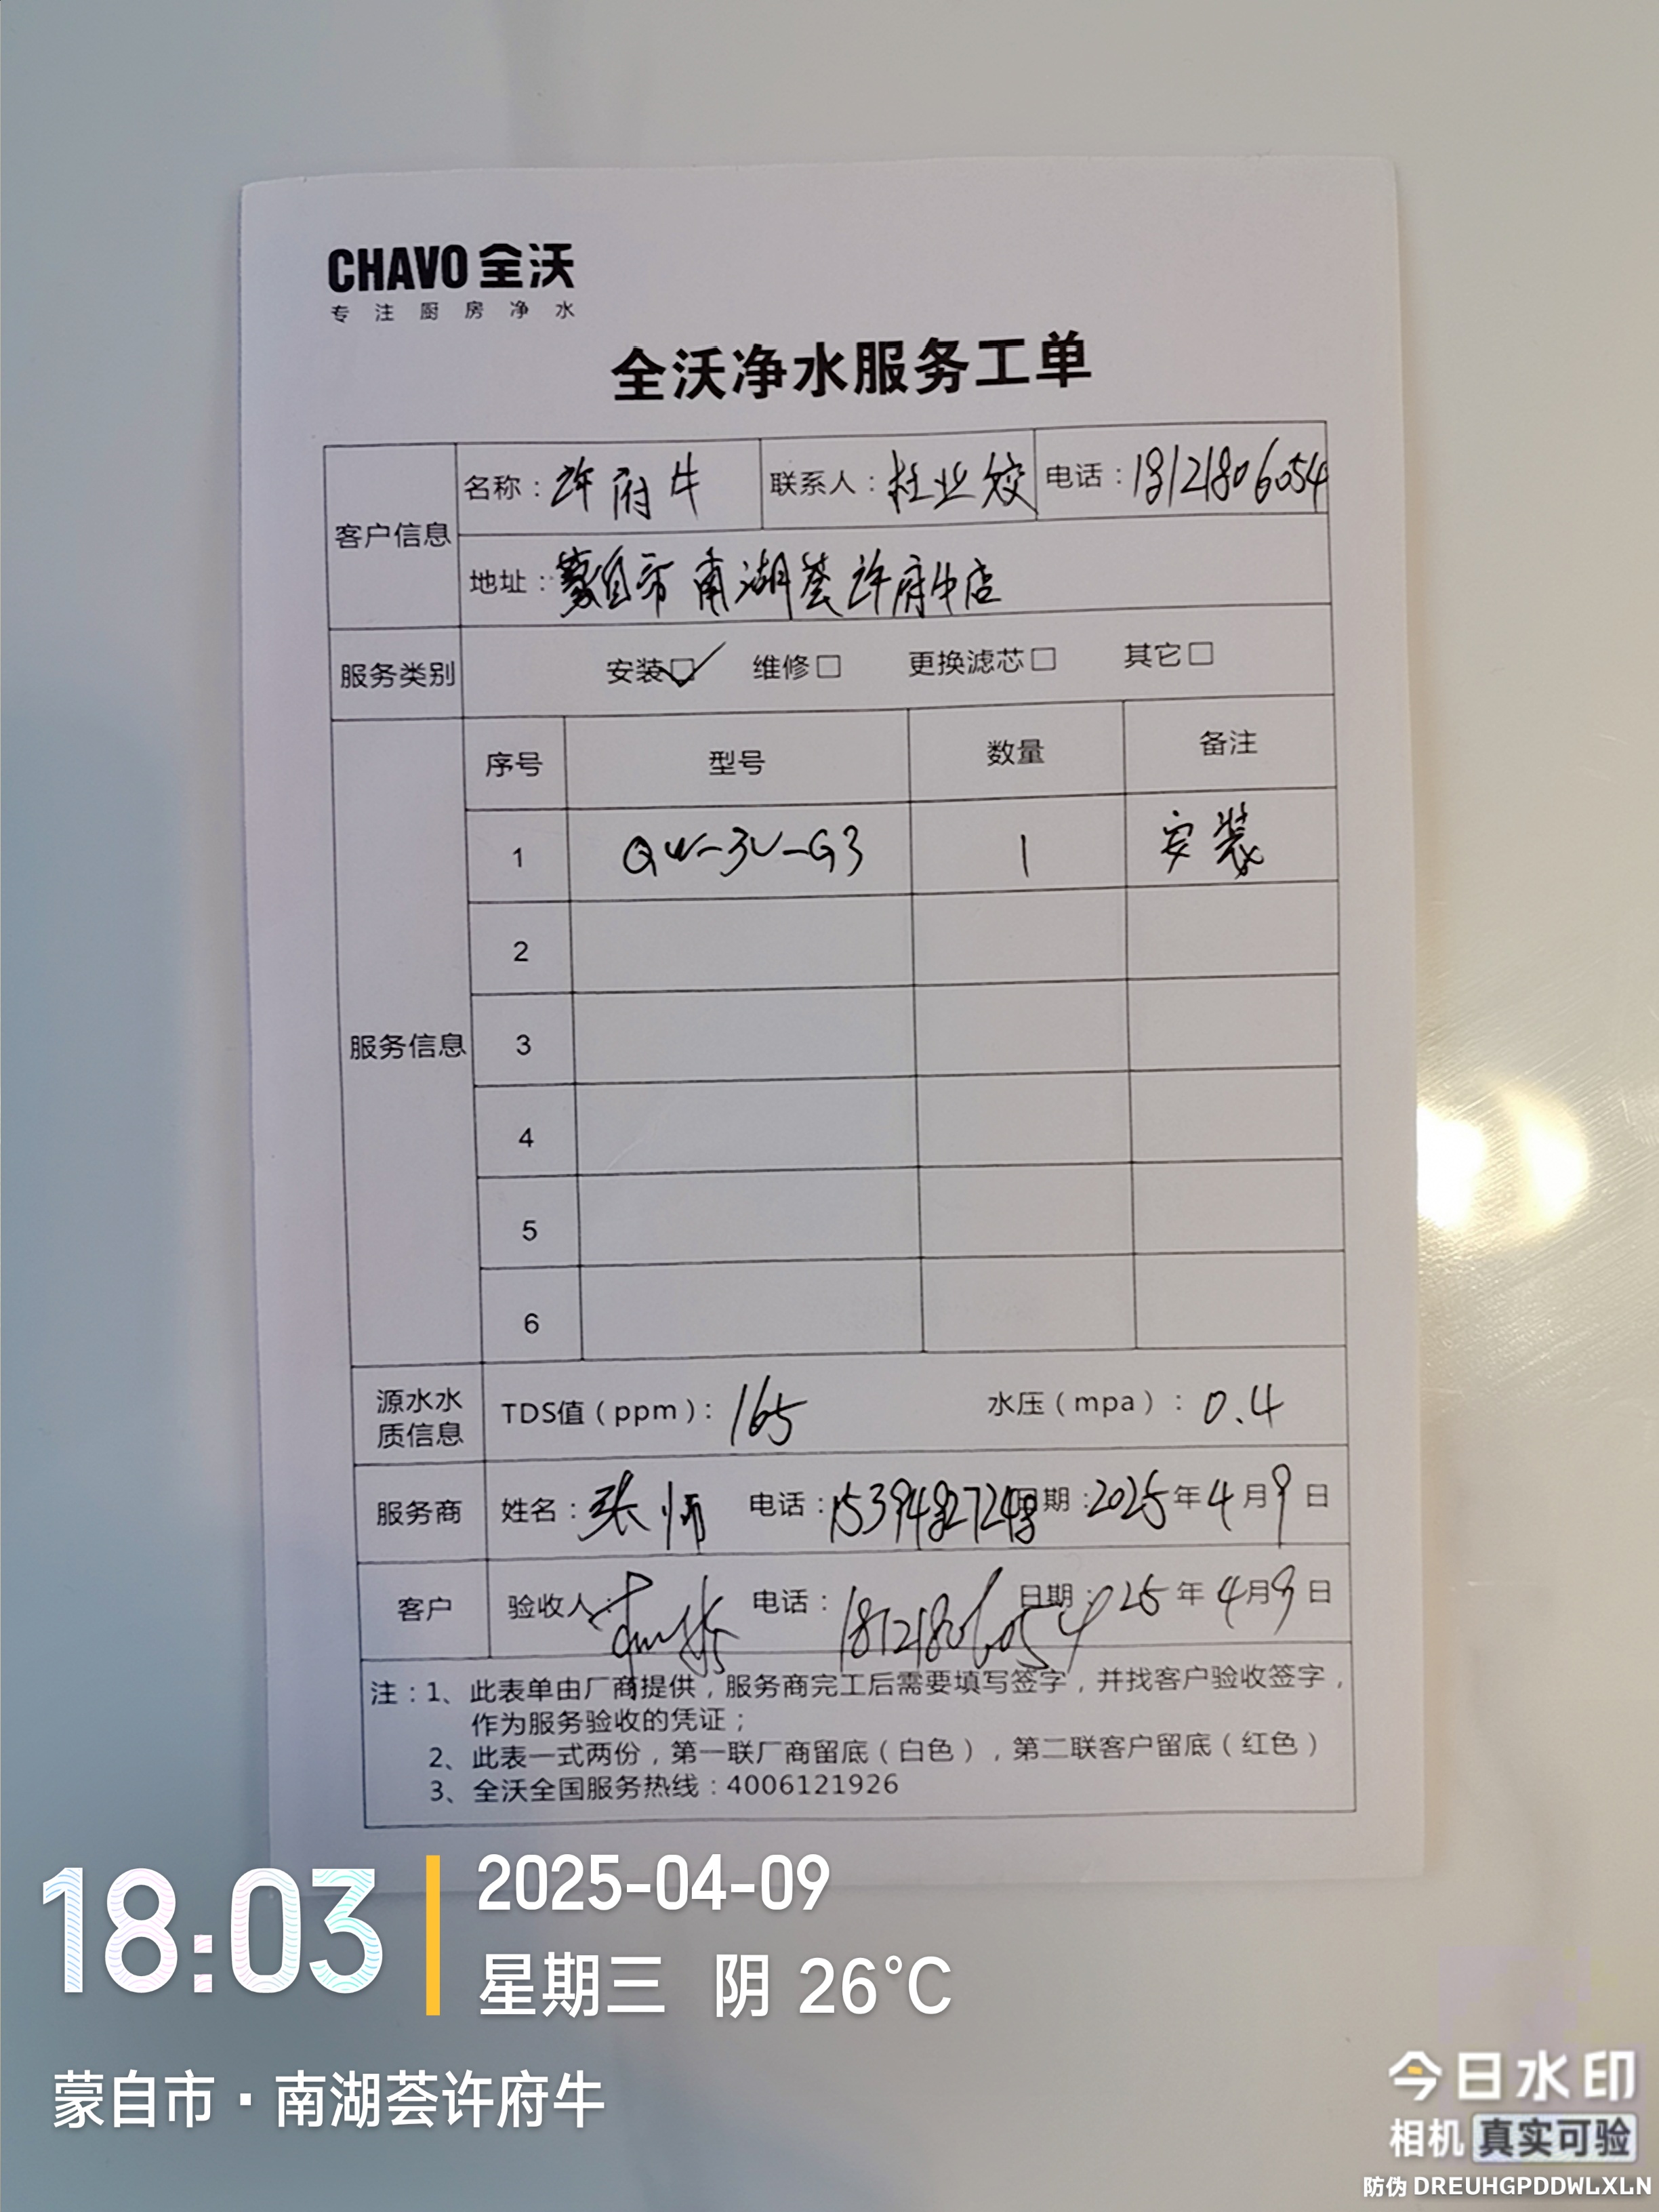 CHAVO 全沃
专注厨房净水
全沃净水服务工单
客户信息
名称：许府牛 联系人：杜业姣 电话：18121806054
地址：蒙自市南湖荟许府牛店
服务类别 安装☑ 维修□ 更换滤芯□ 其它□
服务信息
序号 型号 数量 备注
1 QW-3U-G3 1 安装
2
3
4
5
6
源水水质信息 TDS值（ppm）：165 水压（mpa）：0.4
服务商 姓名：张师 电话：15394827248 日期：2025年4月9日
客户 验收人： 电话：18121806054 日期：25年4月9日
注：1、此表单由厂商提供，服务商完工后需要填写签字，并找客户验收签字，
作为服务验收的凭证；
2、此表一式两份，第一联厂商留底（白色），第二联客户留底（红色）
3、全沃全国服务热线：4006121926
18:03
2025-04-09
星期三 阴 26°C
蒙自市·南湖荟许府牛
今日水印
相机 真实可验
防伪 DREUHGPDDWLXLN